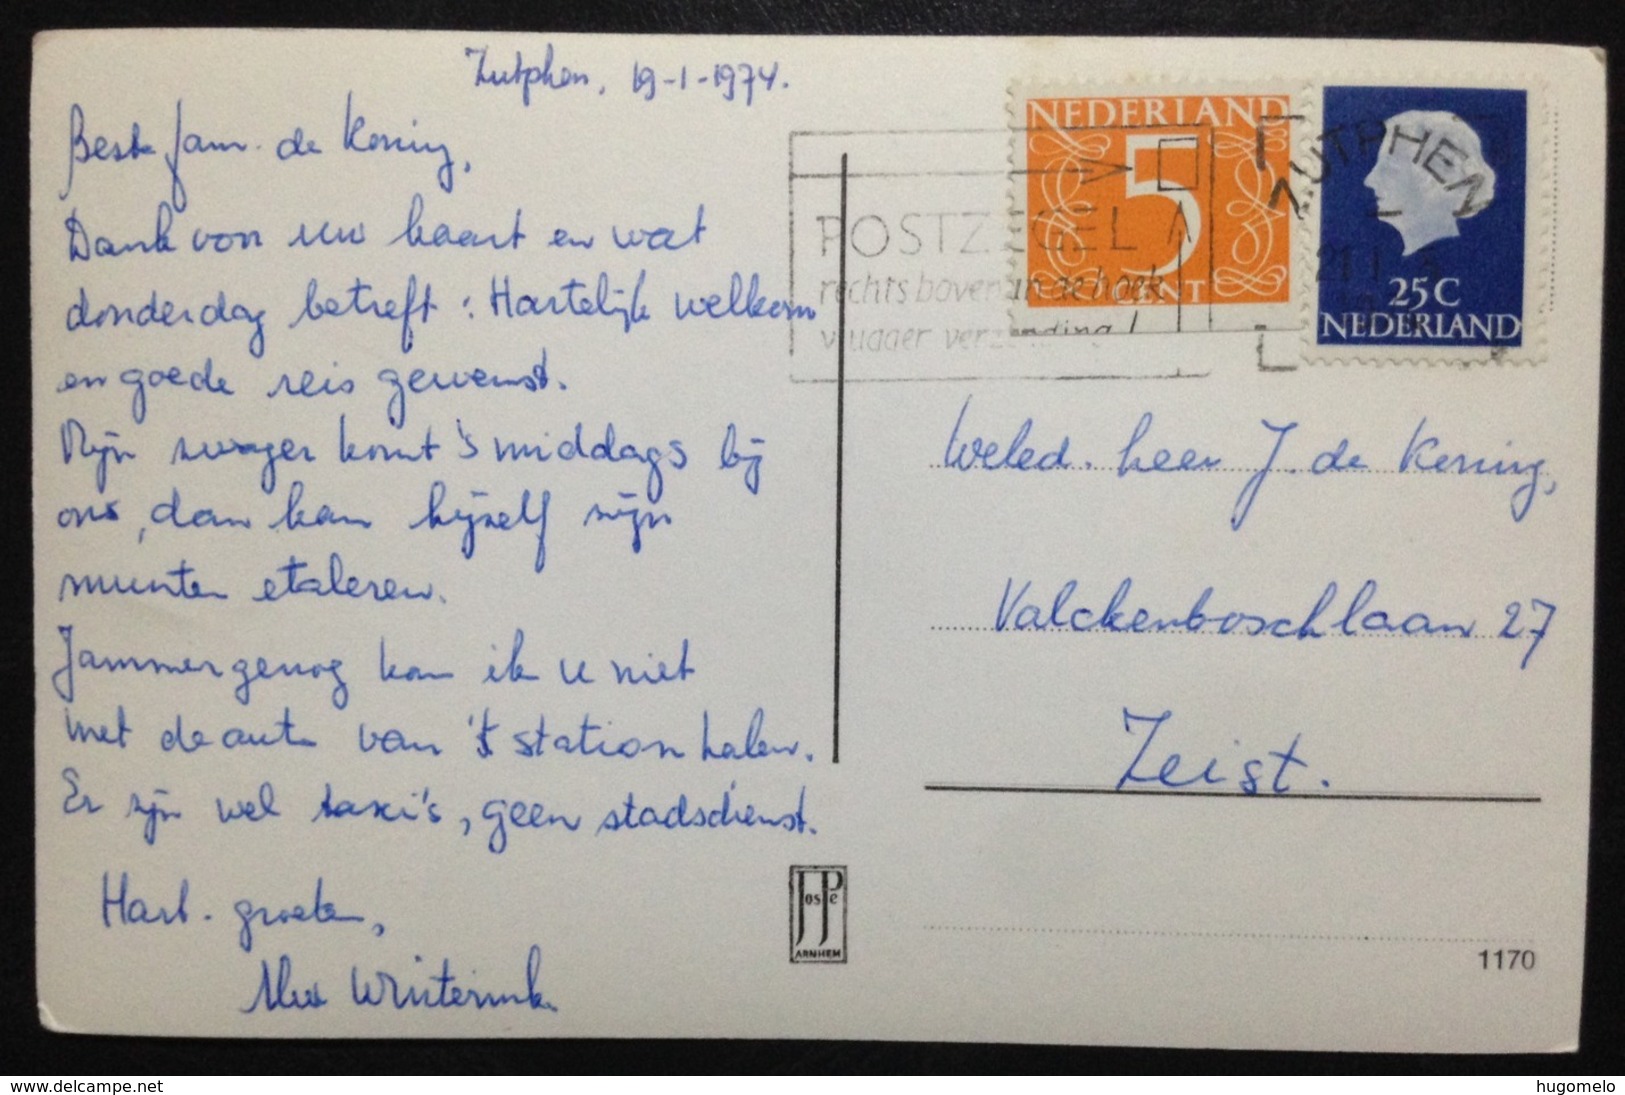 Zutphen, 19-1-1974.
Beste fam. de Koning,
Dank voor uw kaart en wat
donderdag betreft: Hartelijk welkom
en goede reis gewenst.
Mijn zwager komt 's middags bij
ons, dan kan hijzelf zijn
munten etaleren.
Jammer genoeg kan ik u niet
met de auto van 't station halen.
Er zijn wel taxi's, geen stadsdienst.
Hart. groeten,
NEDERLAND
5
CENT
25C
NEDERLAND
ZUTPHEN
POSTZEGEL
rechts boven in de hoek
vlugger verzending!
Weled. heer J. de Koning,
Valckenboschlaan 27
Zeist.
JosPé
ARNHEM
1170
www.delcampe.net
hugomelo